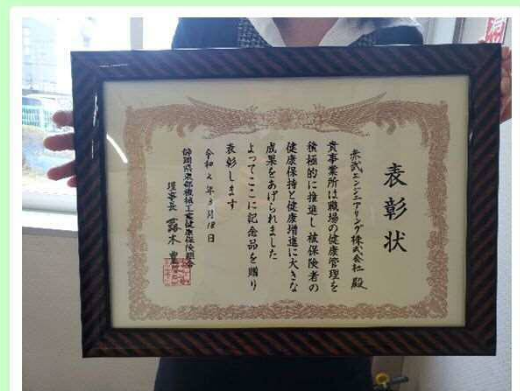 表彰状
赤武エンジニアリング株式会社 殿
貴事業所は職場の健康管理を
積極的に推進し被保険者の
健康保持と健康増進に大きな
成果をあげられました
よってここに記念品を贈り
表彰します
令和2年3月18日
静岡県東部機械工業健康保険組合
理事長